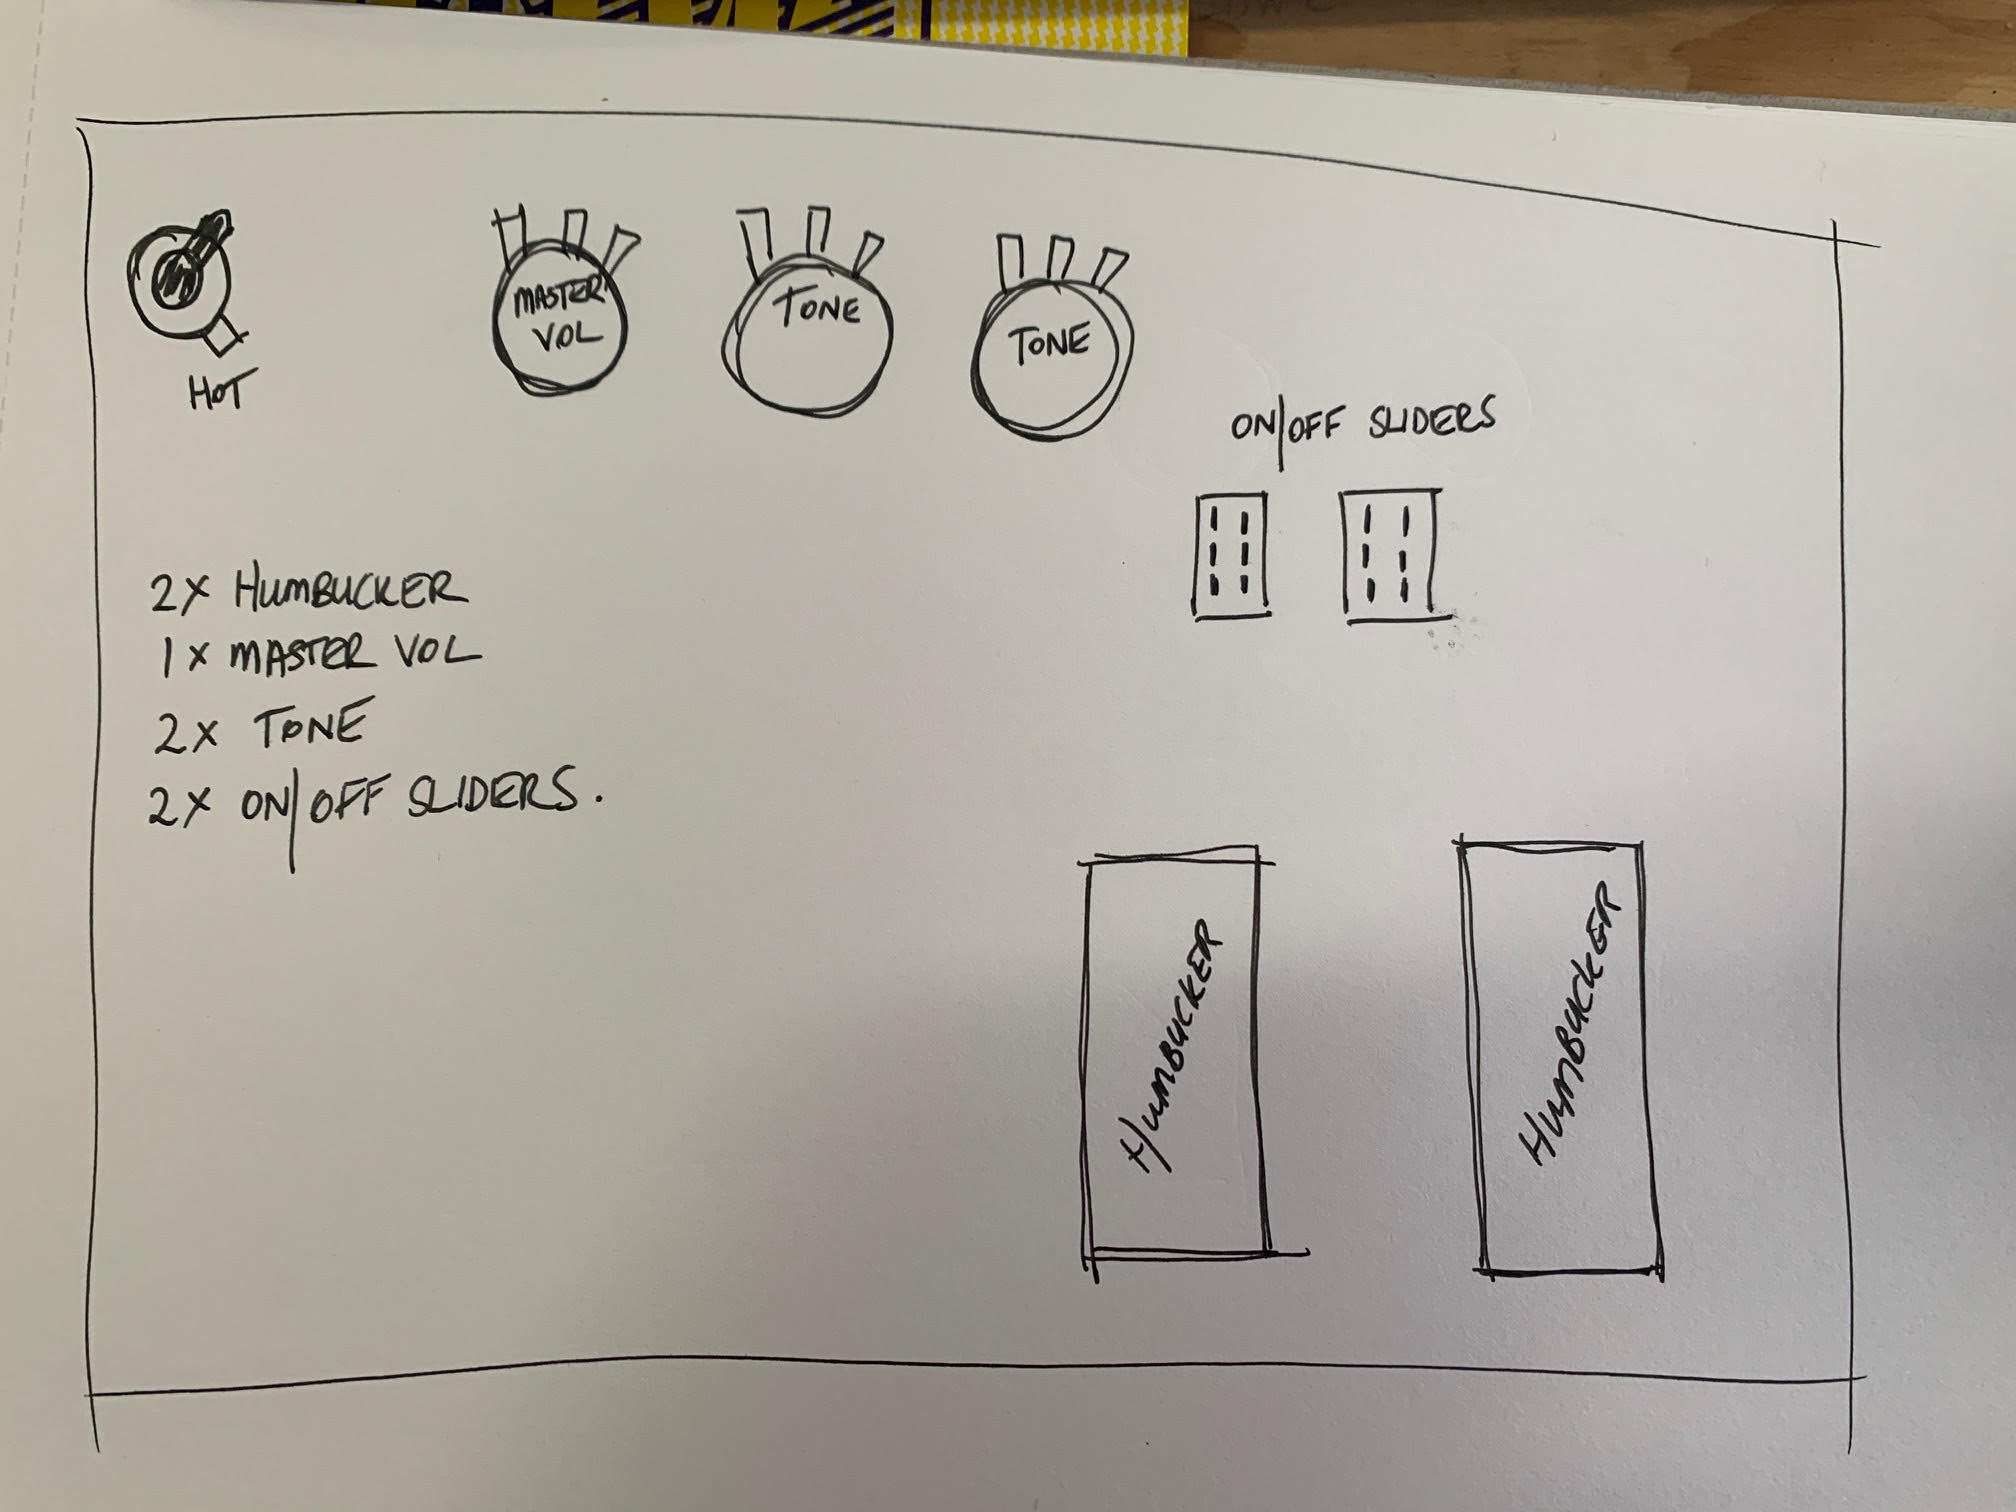 MASTER
VOL
TONE
TONE
HOT
ON/OFF SLIDERS
2X HUMBUCKER
1X MASTER VOL
2X TONE
2X ON/OFF SLIDERS.
HUMBUCKER
HUMBUCKER